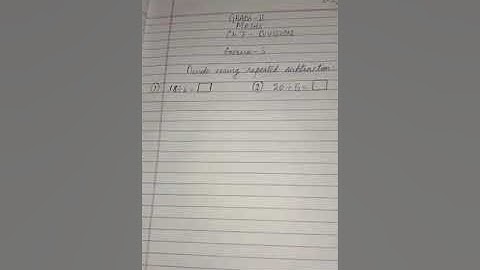 Grade-II
Maths
Ch 7 - Division
Exercise-5
Divide using repeated subtraction:
(1) 18÷6= (2) 20÷5=